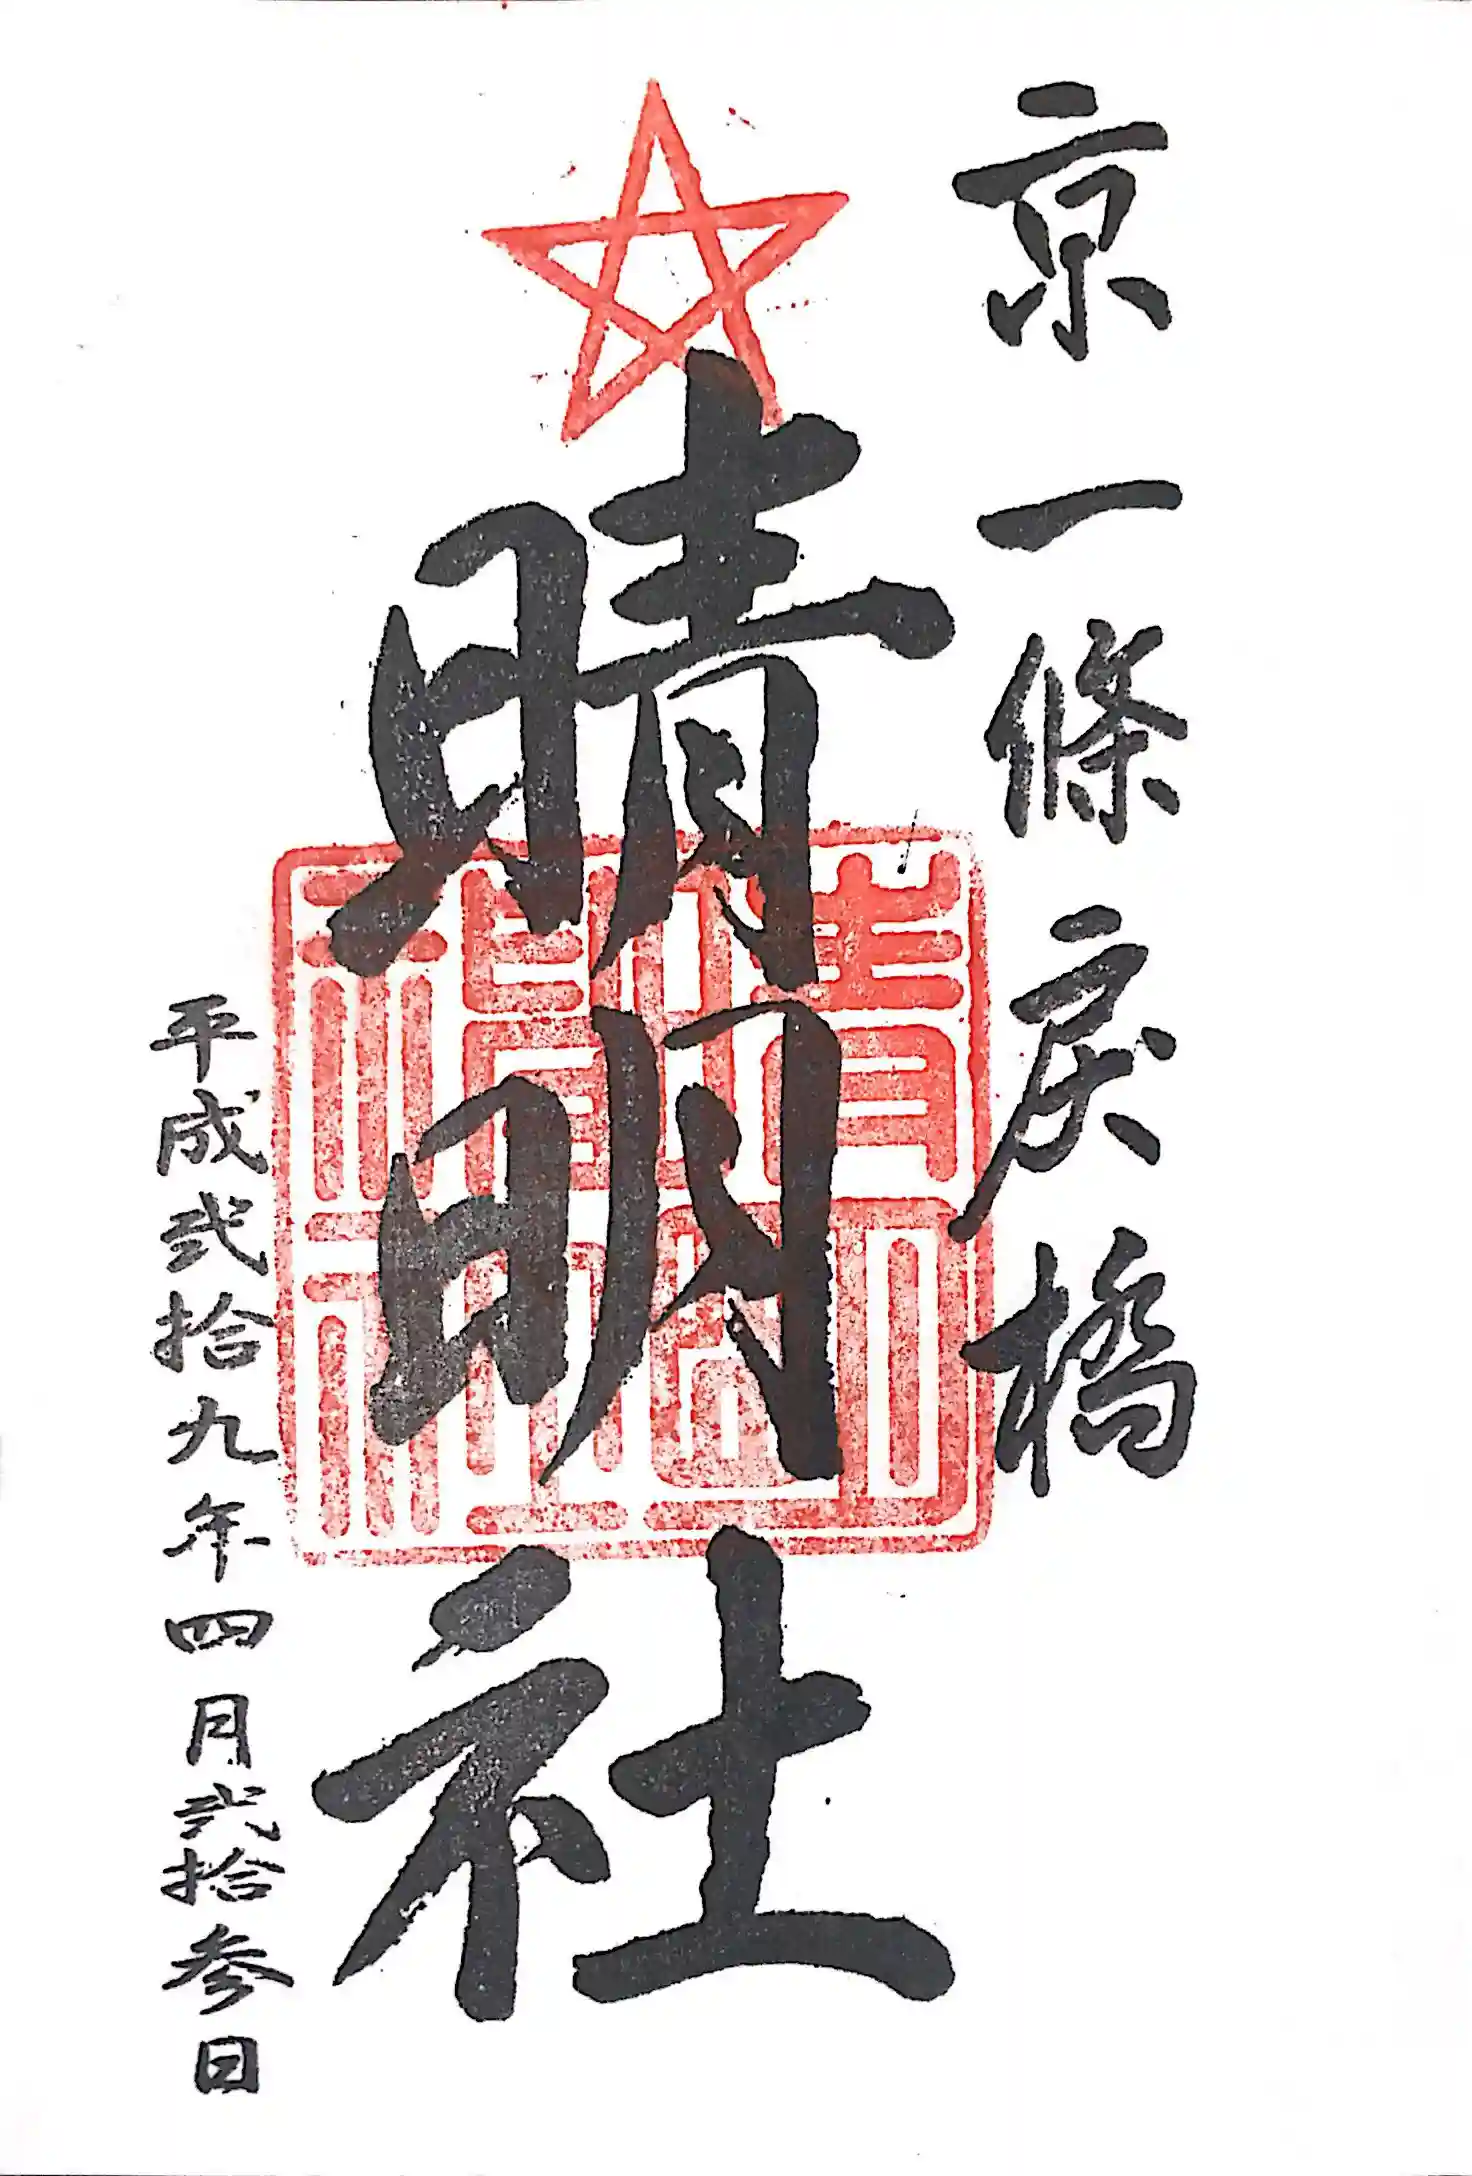 京一條戻橋
晴明社
平成弐拾九年四月弐拾参日